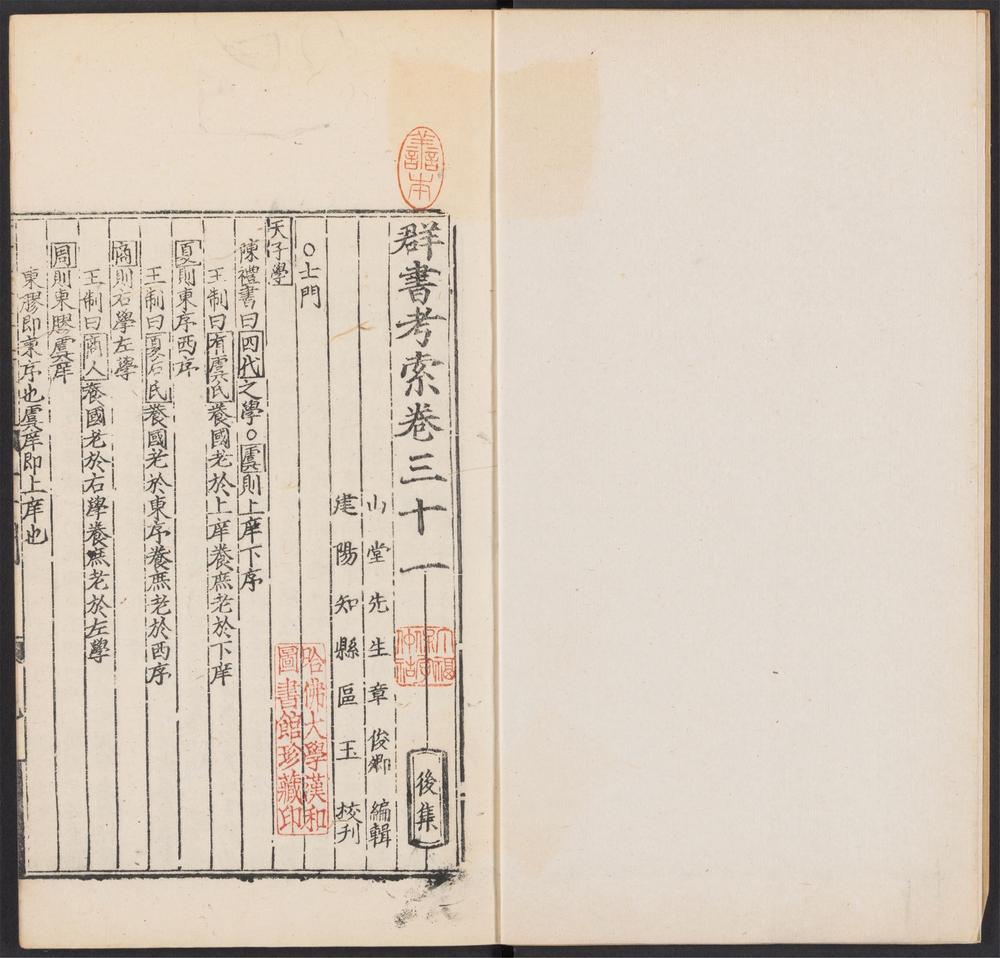 善本
群書考索卷三十一
後集
山堂先生章俊卿編輯
建陽知縣區玉校刊
哈佛大學漢和圖書館珍藏印
○士門
天子學
陳禮書曰四代之學○虞則上庠下序
王制曰有虞氏養國老於上庠養庶老於下庠
夏則東序西序
王制曰夏后氏養國老於東序養庶老於西序
商則右學左學
王制曰商人養國老於右學養庶老於左學
周則東膠虞庠
東膠即東序也虞庠即上庠也